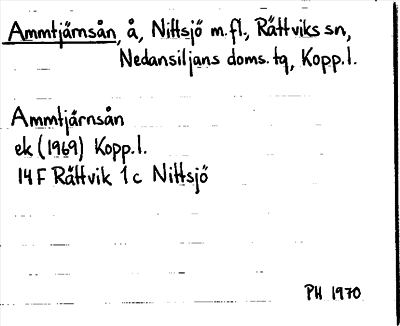 Ammtjärnsån, å, Nittsjö m.fl., Rättviks sn,
Nedansiljans doms. tg, Kopp.l.
Ammtjärnsån
ek (1969) Kopp.l.
14 F Rättvik 1 c Nittsjö
PH 1970